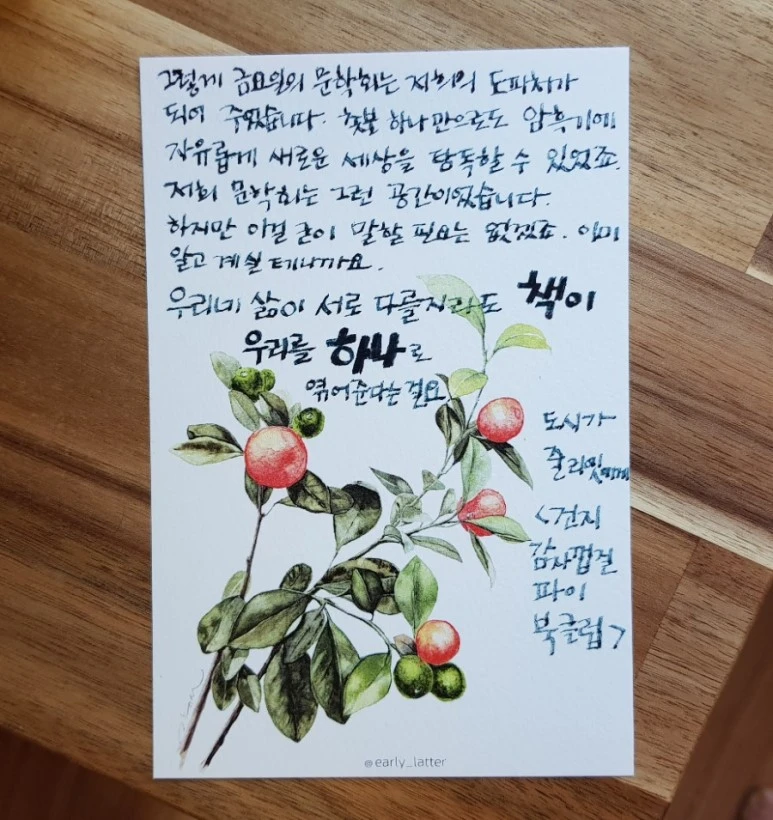 그렇게 금요일의 문학회는 저희의 도피처가
되어 주었습니다. 촛불 하나만으로도 암흑기에
자유롭게 새로운 세상을 탐독할 수 있었죠.
저희 문학회는 그런 공간이었습니다.
하지만 이걸 굳이 말할 필요는 없겠죠. 이미
알고 계실 테니까요.
우리네 삶이 서로 다를지라도 책이
우리를 하나로
엮어준다는 걸요
도시가
줄리엣에게
<건지
감자껍질
파이
북클럽>
@early_latter